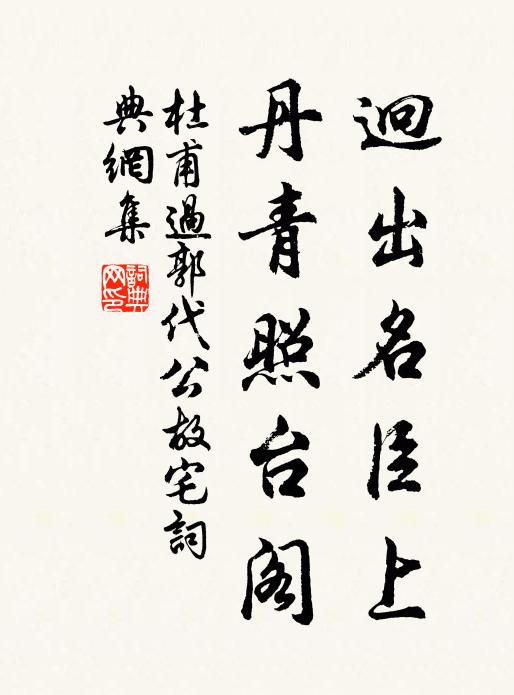 迥出名臣上
丹青照台阁
杜甫過郭代公故宅詞
典網集
詞典
网印